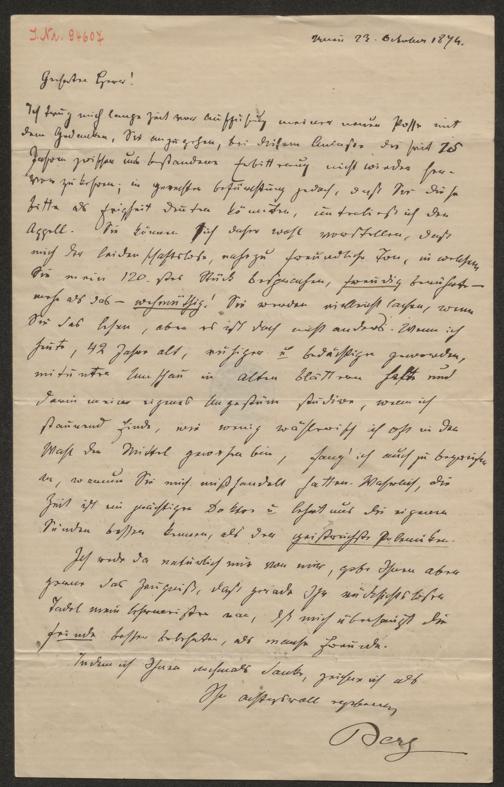 I.Nr. 94607
Wien 23. October 1874.
Geehrter Herr!
Ich trug mich lange Zeit vor Aufführung meiner neuen Posse mit
dem Gedanken, Sie anzugehen, bei diesem Anlasse die seit 15
Jahren zwischen uns bestandene Erbitterung nicht wieder her-
vorzukehren; in gerechter Befürchtung jedoch, daß Sie diese
Bitte als Feigheit deuten könnten, unterließ ich den
Appell. Sie können sich daher wohl vorstellen, daß
mich der leidenschaftslose, nahezu freundliche Ton, in welchem
Sie mein 120. stes Stück besprachen, freudig berührte –
mehr als das – wehmüthig! Sie werden vielleicht lachen, wenn
Sie das lesen, aber es ist doch nicht anders. Wenn ich
heute, 42 Jahre alt, ruhiger u bedächtiger geworden,
mitunter Umschau in alten Blättern halte und
darin meinen eigenen Ungestüm studire, wenn ich
staunend finde, wie wenig wählerisch ich oft in der
Wahl der Mittel gewesen bin, fang' ich auch zu begreifen
an, warum Sie mich mißhandelt hatten. Wahrlich, die
Zeit ist ein prächtiger Doktor u lehrt uns die eigenen
Sünden besser kennen, als der geistreichste Polemiker.
Ich rede da natürlich nur von mir, gebe Ihnen aber
gerne das Zeugniß, daß gerade Ihr rücksichtsloser
Tadel mein Lehrmeister war, daß mich überhaupt die
Feinde besser belehrten, als manche Freunde.
Indem ich Ihnen nochmals danke, zeichne ich als
Ihr achtungsvoll ergebener
Berg